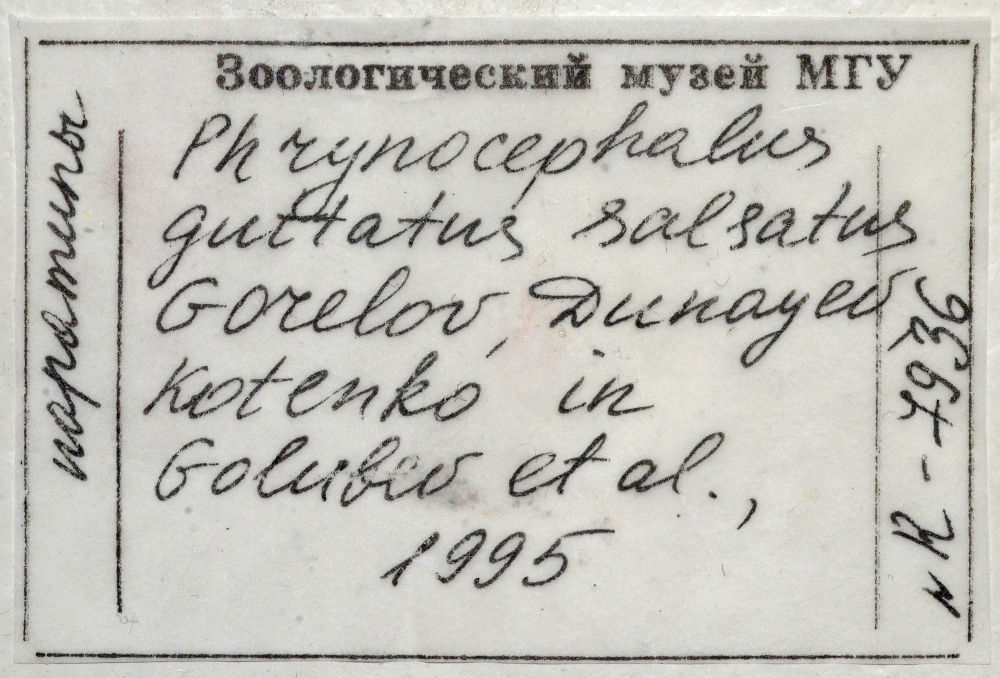 Зоологический музей МГУ
паратипы
Phrynocephalus
guttatus salsatus
Gorelov, Dunayev
Kotenko in
Golubev et al.,
1995
N R-4936